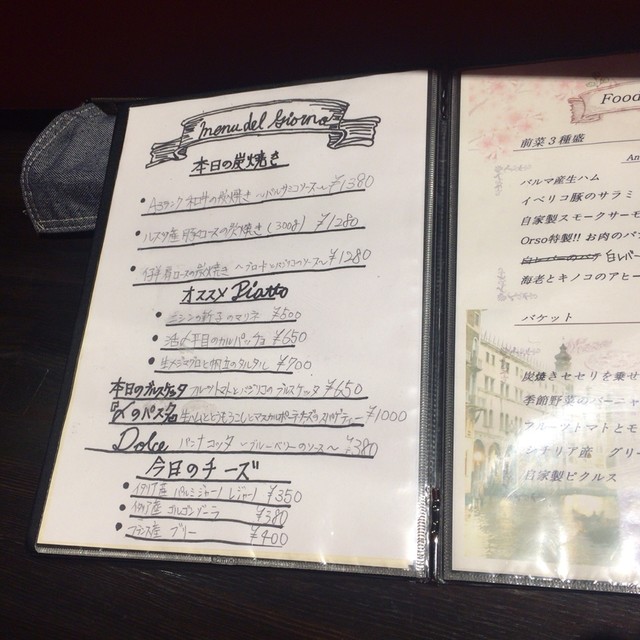 menu del Giorno
本日の炭焼き
A3ランク和牛の炭焼き ～バルサミコソース～ ¥1380
豚ロースの炭焼き (300g) ¥1280
仔羊肩ロースの炭焼き ¥1280
オススメ Piatto
¥500
活〆平目のカルパッチョ ¥650
生メジマグロと帆立のタルタル ¥700
本日のブルスケッタ フルーツトマトとバジリコのブルスケッタ ¥650
〆のパスタ 生ハムとほうれん草 ¥1000
Dolce パンナコッタ ～ブルーベリーのソース～ ¥380
今日のチーズ
イタリア産 パルミジャーノレジャーノ ¥350
イタリア産 ゴルゴンゾーラ ¥380
フランス産 ブリー ¥400
Food
前菜3種盛
An
パルマ産生ハム
イベリコ豚のサラミ
自家製スモークサーモ
Orso特製!! お肉のパテ
白レバー
海老とキノコのアヒー
バケット
炭焼きセセリを乗せ
季節野菜のバーニャ
フルーツトマトとモ
シチリア産 グリー
自家製ピクルス